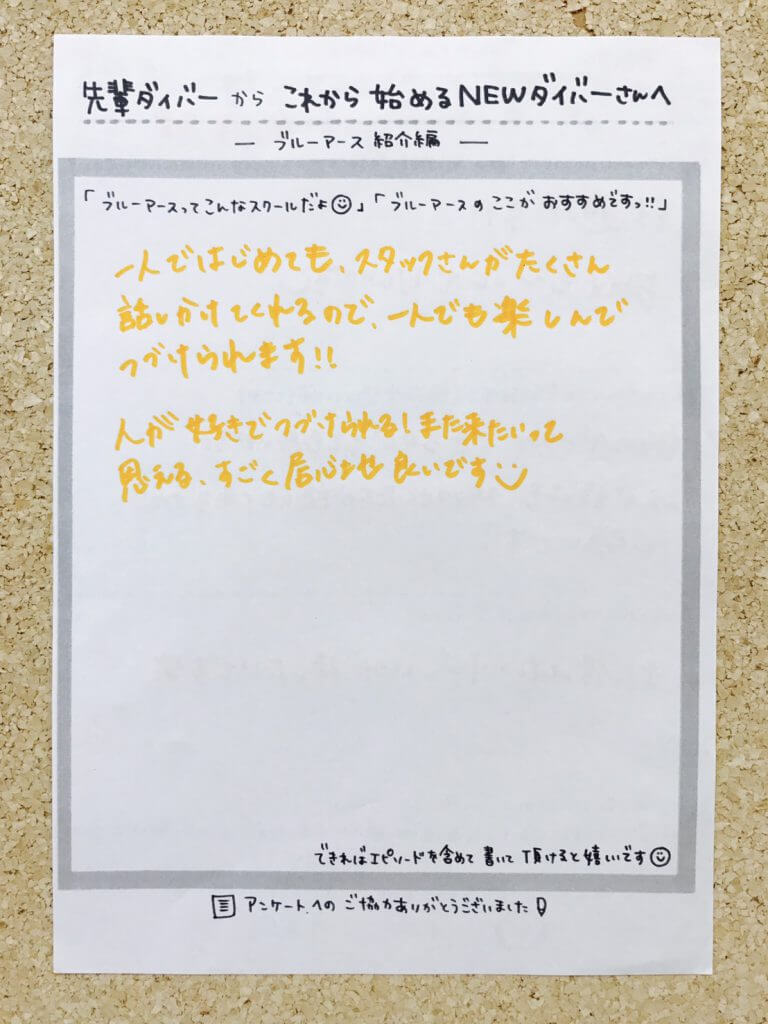 先輩ダイバーから これから始めるNEWダイバーさんへ
― ブルーアース紹介編 ―
「ブルーアースってこんなスクールだよ☺」「ブルーアースの ここが おすすめですっ!!」
一人ではじめても、スタッフさんがたくさん
話しかけてくれるので、一人でも楽しんで
つづけられます!!
人が好きでつづけられる!また来たいって
思える、すごく居心地良いです
できればエピソードを含めて書いて頂けると嬉しいです☺
アンケートへのご協力ありがとうございました